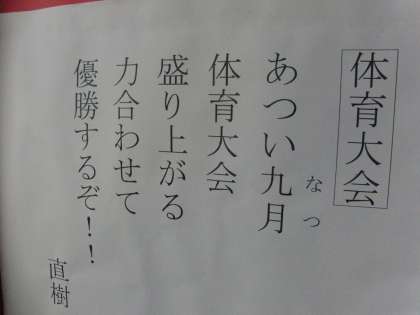 体育大会
あつい九月
なつ
体育大会
盛り上がる
力合わせて
優勝するぞ！！
直樹